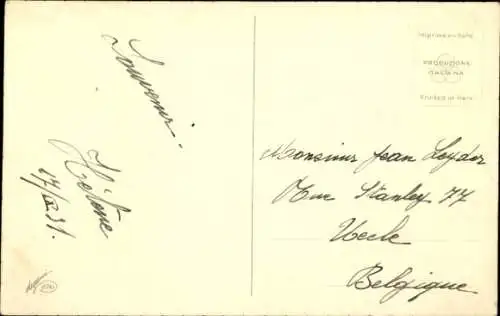 Souvenir.
Hélène
Imprimé en Italie
PRODUZIONE
ITALIANA
Printed in Italy
Monsieur Jean Leyder
Rue Stanley 77
Uccle
Belgique